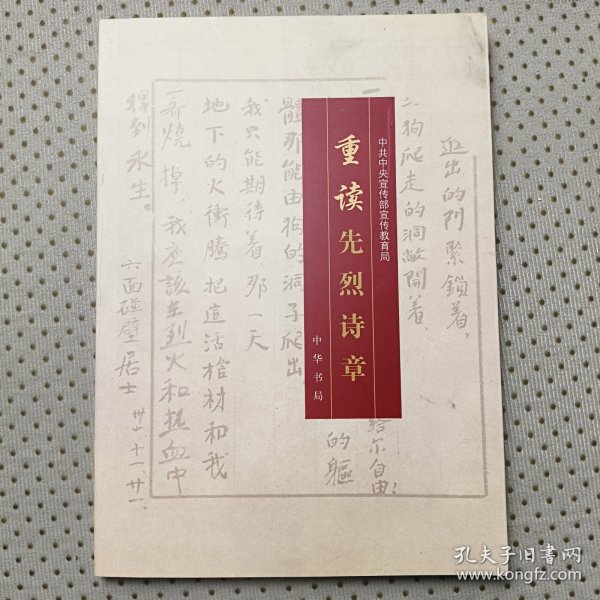 中共中央宣传部宣传教育局
重读先烈诗章
中华书局
进出的门紧锁着,
狗爬走的洞敞开着,
给尔自由!
的躯
体那能由狗的洞子爬出
我只能期待着,那一天
地下的火冲腾把这活棺材和我
一齐烧掉,我应该在烈火和热血中
得到永生。
六面碰壁居士
卅一、十一、廿一、
孔夫子旧书网
www.kongfz.com